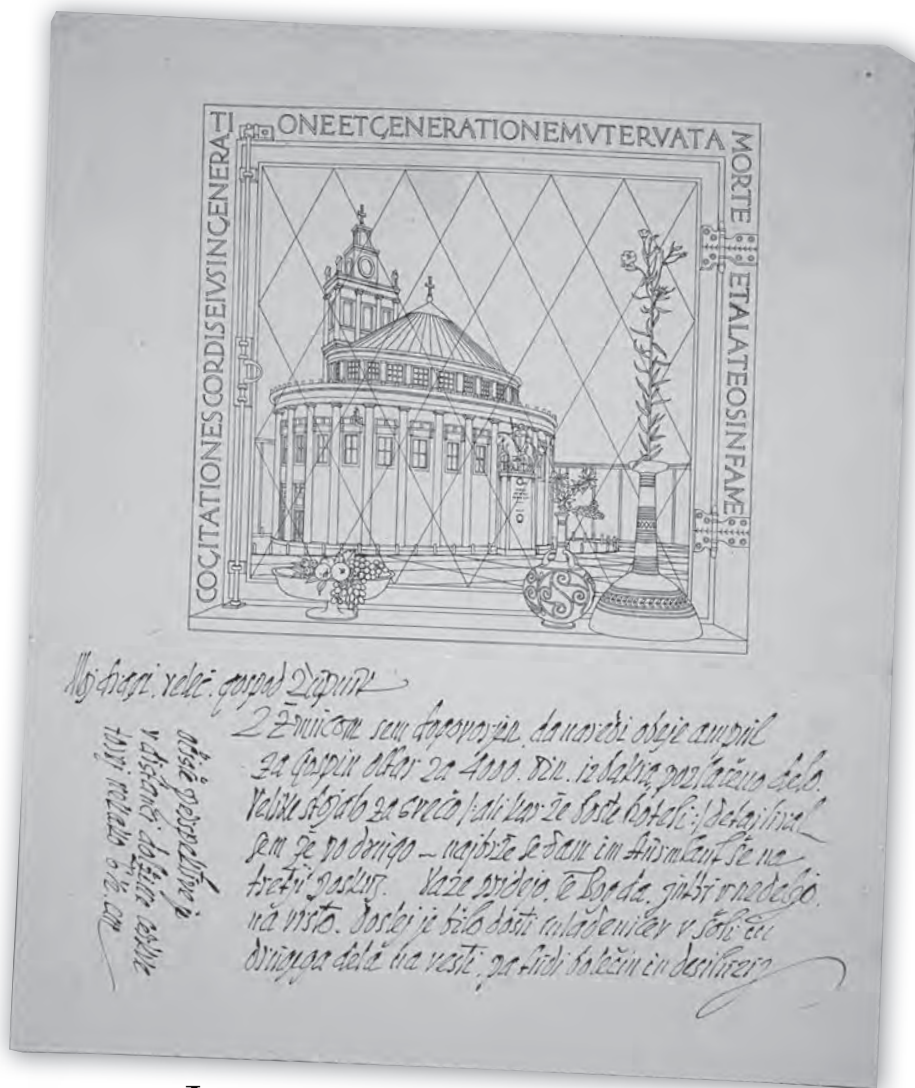 COGITATIONESCORDISEIVSINGENERA
TI ONEETGENERATIONEMVTERVATA
MORTE ETALATEOSINFAME
Moj dragi. veleč. gospod Župnik
Z Žmucom sem dogovorjen, da naredi oboje ampul
za Gospin oltar za 4000. Din. iz bakra, pozlačeno delo.
Veliko stojalo za svečo /:ali kar že boste hoteli:/
sem že v drugo – najbrže se dam im še na
tretji poskus. Kaže pridejo, če Bog da, jutri v nedeljo,
na vrsto. Doslej je bilo dosti v šoli in
drugega dela na vesti, pa tudi bolečin in
obsic perspektive je
v distanci dolžine
torej nekako